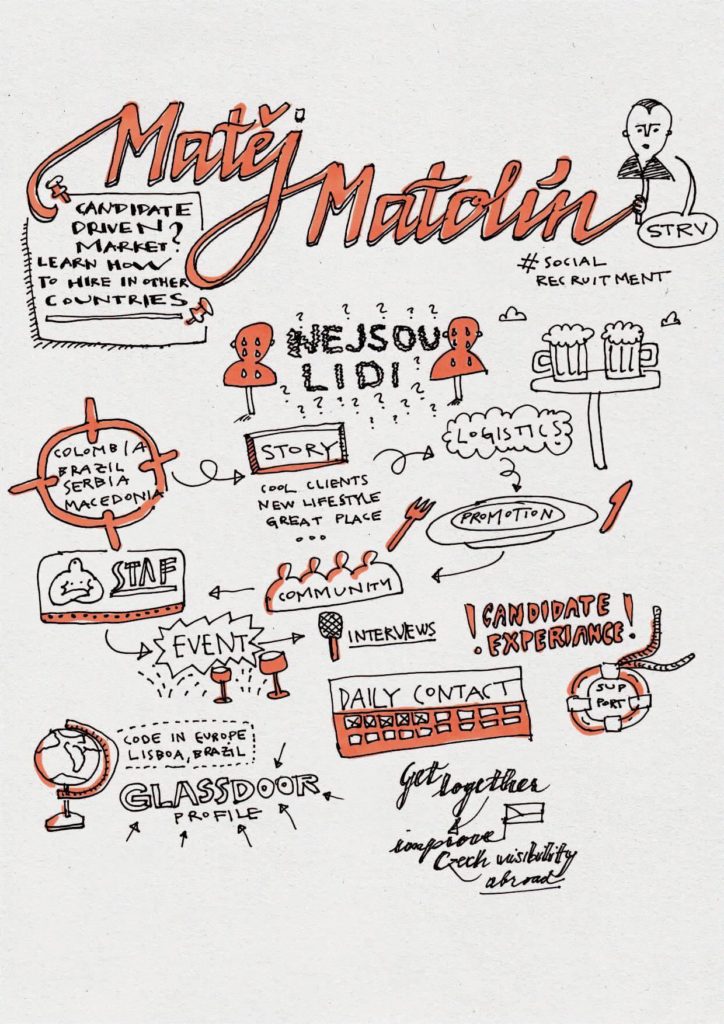 Matěj
Matolín
STRV
CANDIDATE
DRIVEN
MARKET?
LEARN HOW
TO HIRE IN OTHER
COUNTRIES
#SOCIAL
RECRUITMENT
NEJSOU
LIDI
COLOMBIA
BRAZIL
SERBIA
MACEDONIA
STORY
COOL CLIENTS
NEW LIFESTYLE
GREAT PLACE
...
LOGISTICS
PROMOTION
COMMUNITY
STAF
EVENT
INTERVIEWS
!CANDIDATE
EXPERIANCE!
SUP
PORT
DAILY CONTACT
CODE IN EUROPE
LISBOA, BRAZIL
GLASSDOOR
PROFILE
Get together
improve
Czech visibility
abroad